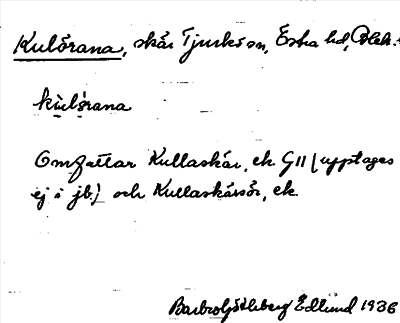 Kulörana, skär Tjurkö sn, Östra hd, Blek.
kùlö́rana
Omfattar Kullaskär, ek. G11 (upptages
ej i jb.) och Kullaskärsör, ek.
Barbro Götheberg Edlund 1936